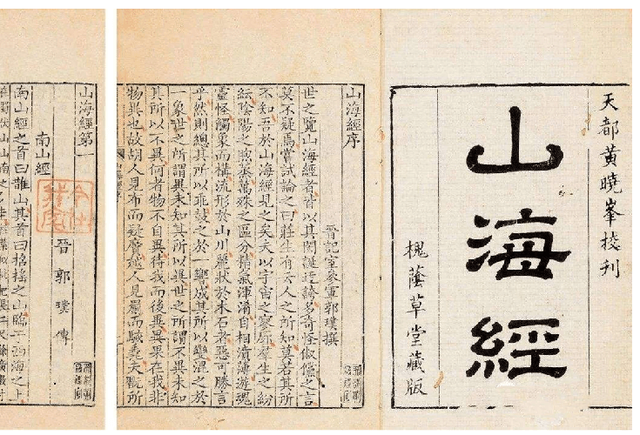 天都黄曉峯校刊
山海經
槐蔭草堂藏版
山海經序
晉記室參軍郭璞撰
世之覽山海經者皆以其閎誕迂誇多奇怪俶儻之言
莫不疑焉嘗試論之曰莊生有云人之所知莫若其所
不知吾於山海經見之矣夫以宇宙之寥廓羣生之紛
紜陰陽之煦蒸萬殊之區分精氣渾淆自相濆薄遊魂
靈怪觸象而構流形於山川麗狀於木石者惡可勝言
乎然則總其所以乖鼓之於一響成其所以變混之於
一象世之所謂異未知其所以異世之所謂不異未知
其所以不異何者物不自異待我而後異異果在我非
物異也故胡人見布而疑黂越人見罽而駭毳夫翫所
山海經第一
晉郭璞傳
南山經
南山經之首曰䧿山其首曰招搖之山臨于西海之上